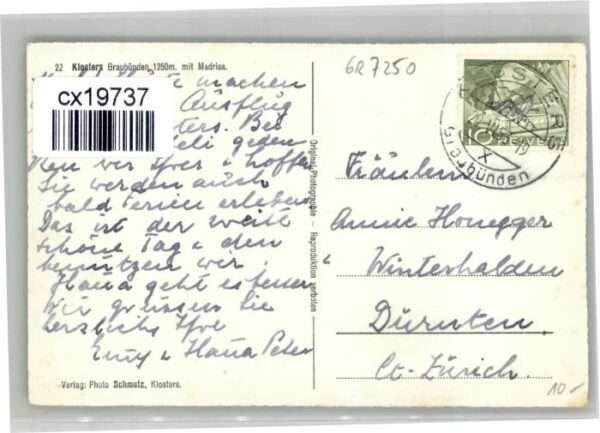 22 Klosters Graubünden, 1250m. mit Madrisa.
GR 7250
machen
cx19737
Ausflug
Bei
geden
ken wir Ihrer & hoffen
Sie werden auch
bald Ferien erleben
Das ist der
schöne Tag & den
benützen wir.
geht es besser
Wir grüssen Sie
herzlichst Ihre
Emy & Hana Peter
Verlag: Photo Schmelz, Klosters.
Original-Photographie - Reproduktion verboten
10
Graubünden
Fräulein
Annie Honegger
Winterhalden
Dürnten
Ct. Zürich.
10.-